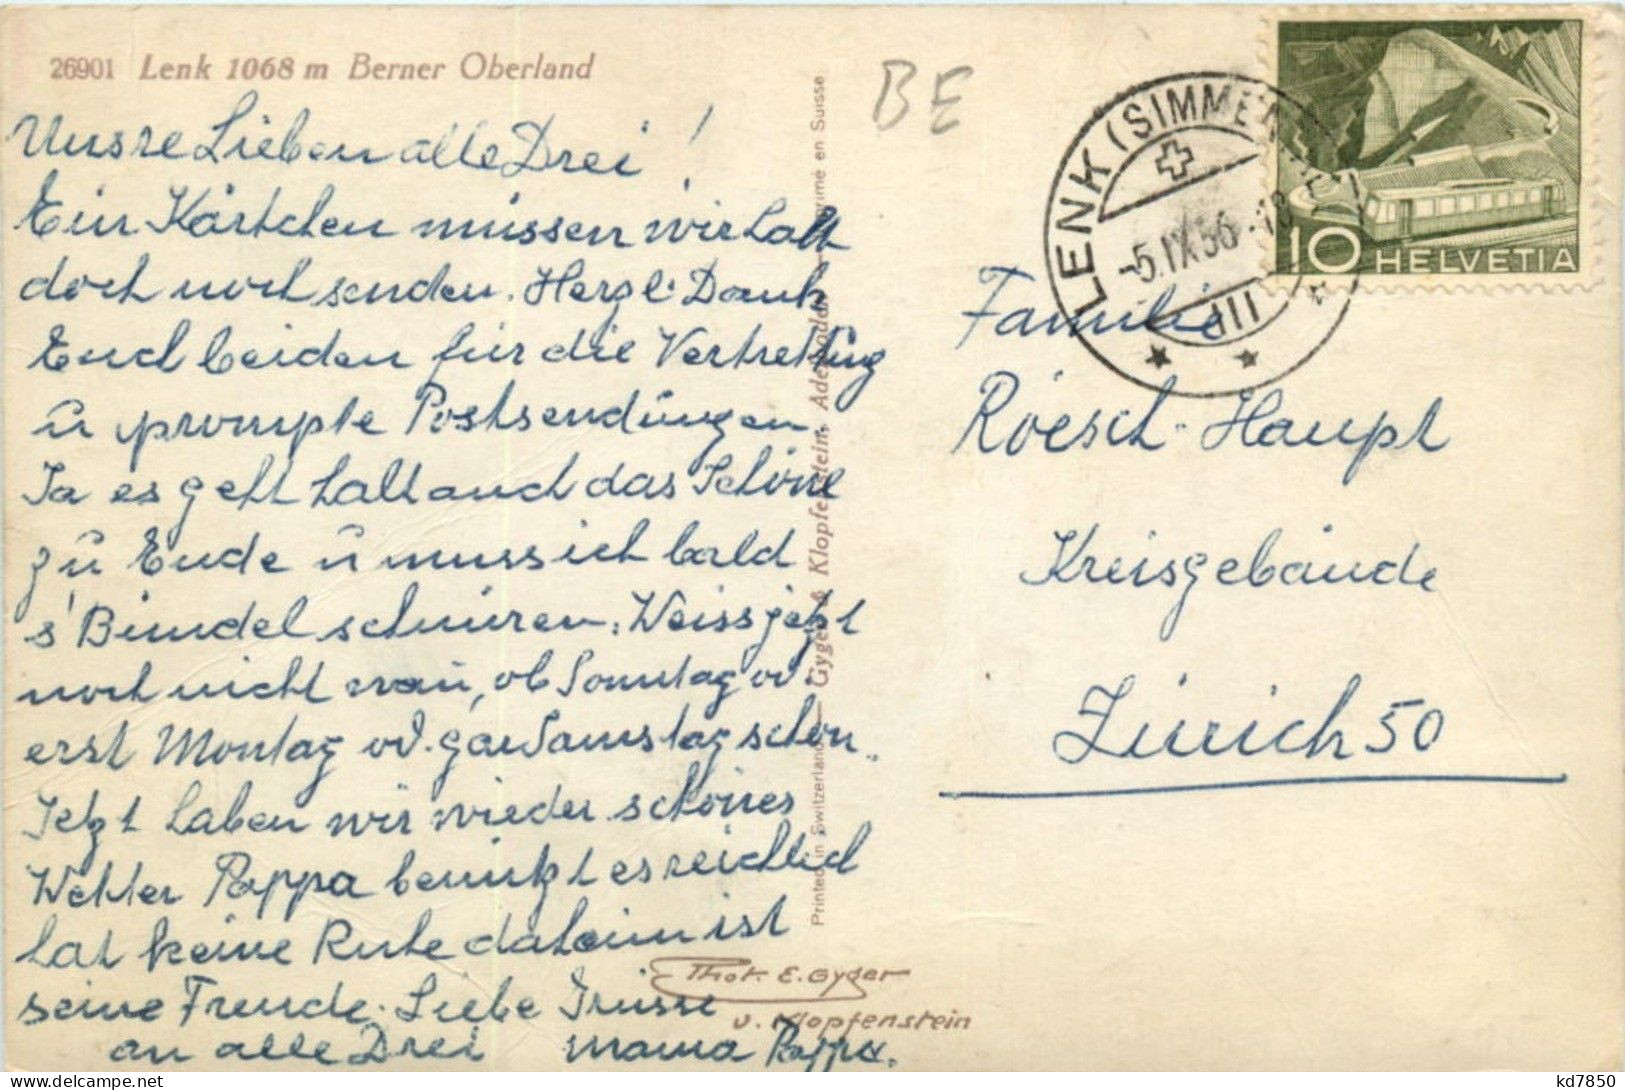 26901 Lenk 1068 m Berner Oberland
Unsre Lieben alle Drei!
Ein Kärtchen müssen wir halt
doch noch senden. Herzl. Dank
Euch beiden für die Vertrettŭng
ŭ prompte Postsendŭngen.
Ja es geht halt auch das Schöne
zŭ Ende ŭ muss ich bald
s'Bündel schnüren. Weiss jetzt
noch nicht wan, ob Sonntag od.
erst Montag od. gar Samstag schon.
Jetzt haben wir wieder schönes
Wetter Pappa benützt es reichlich
hat keine Ruhe daheim ist
seine Freude. Liebe Grüsse
an alle Drei Mama Pappa.
Printed in Switzerland — Gyger & Klopfenstein, Adelboden — Imprimé en Suisse
Phot. E. Gyger
u. Klopfenstein
BE
LENK (SIMMENTAL)
-5.IX.56-18
III
10 HELVETIA
Familie
Roesch-Haupt
Kreisgebäude
Zürich 50
delcampe.net
kd7850